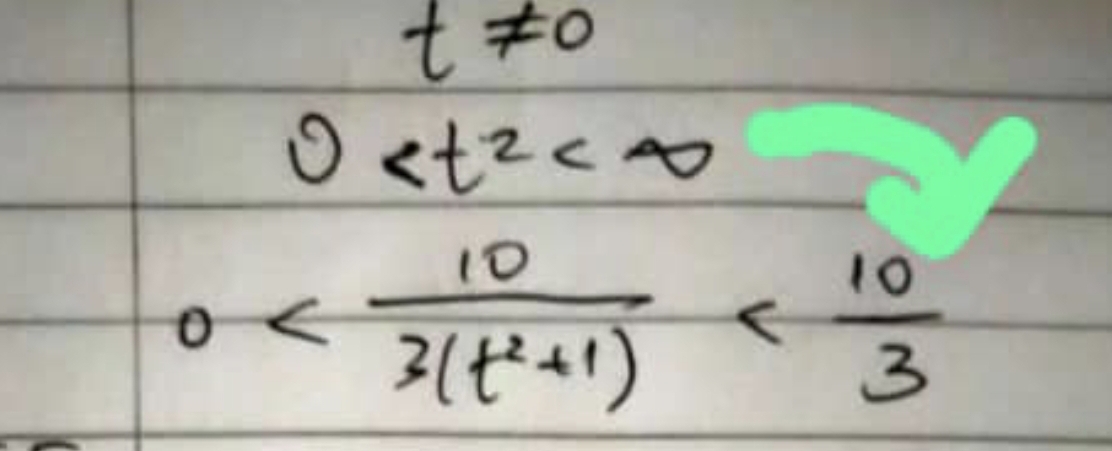 t ≠ 0
0 < t² < ∞
0 < 10/3(t²+1) < 10/3